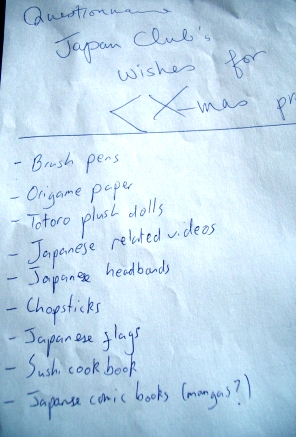 Questionname
Japan Club's
wishes for
X-mas pr
- Brush pens
- Origame paper
- Totoro plush dolls
- Japanese related videos
- Japanese headbands
- Chopsticks
- Japanese flags
- Sushi cook book
- Japanse comic books (mangas?)